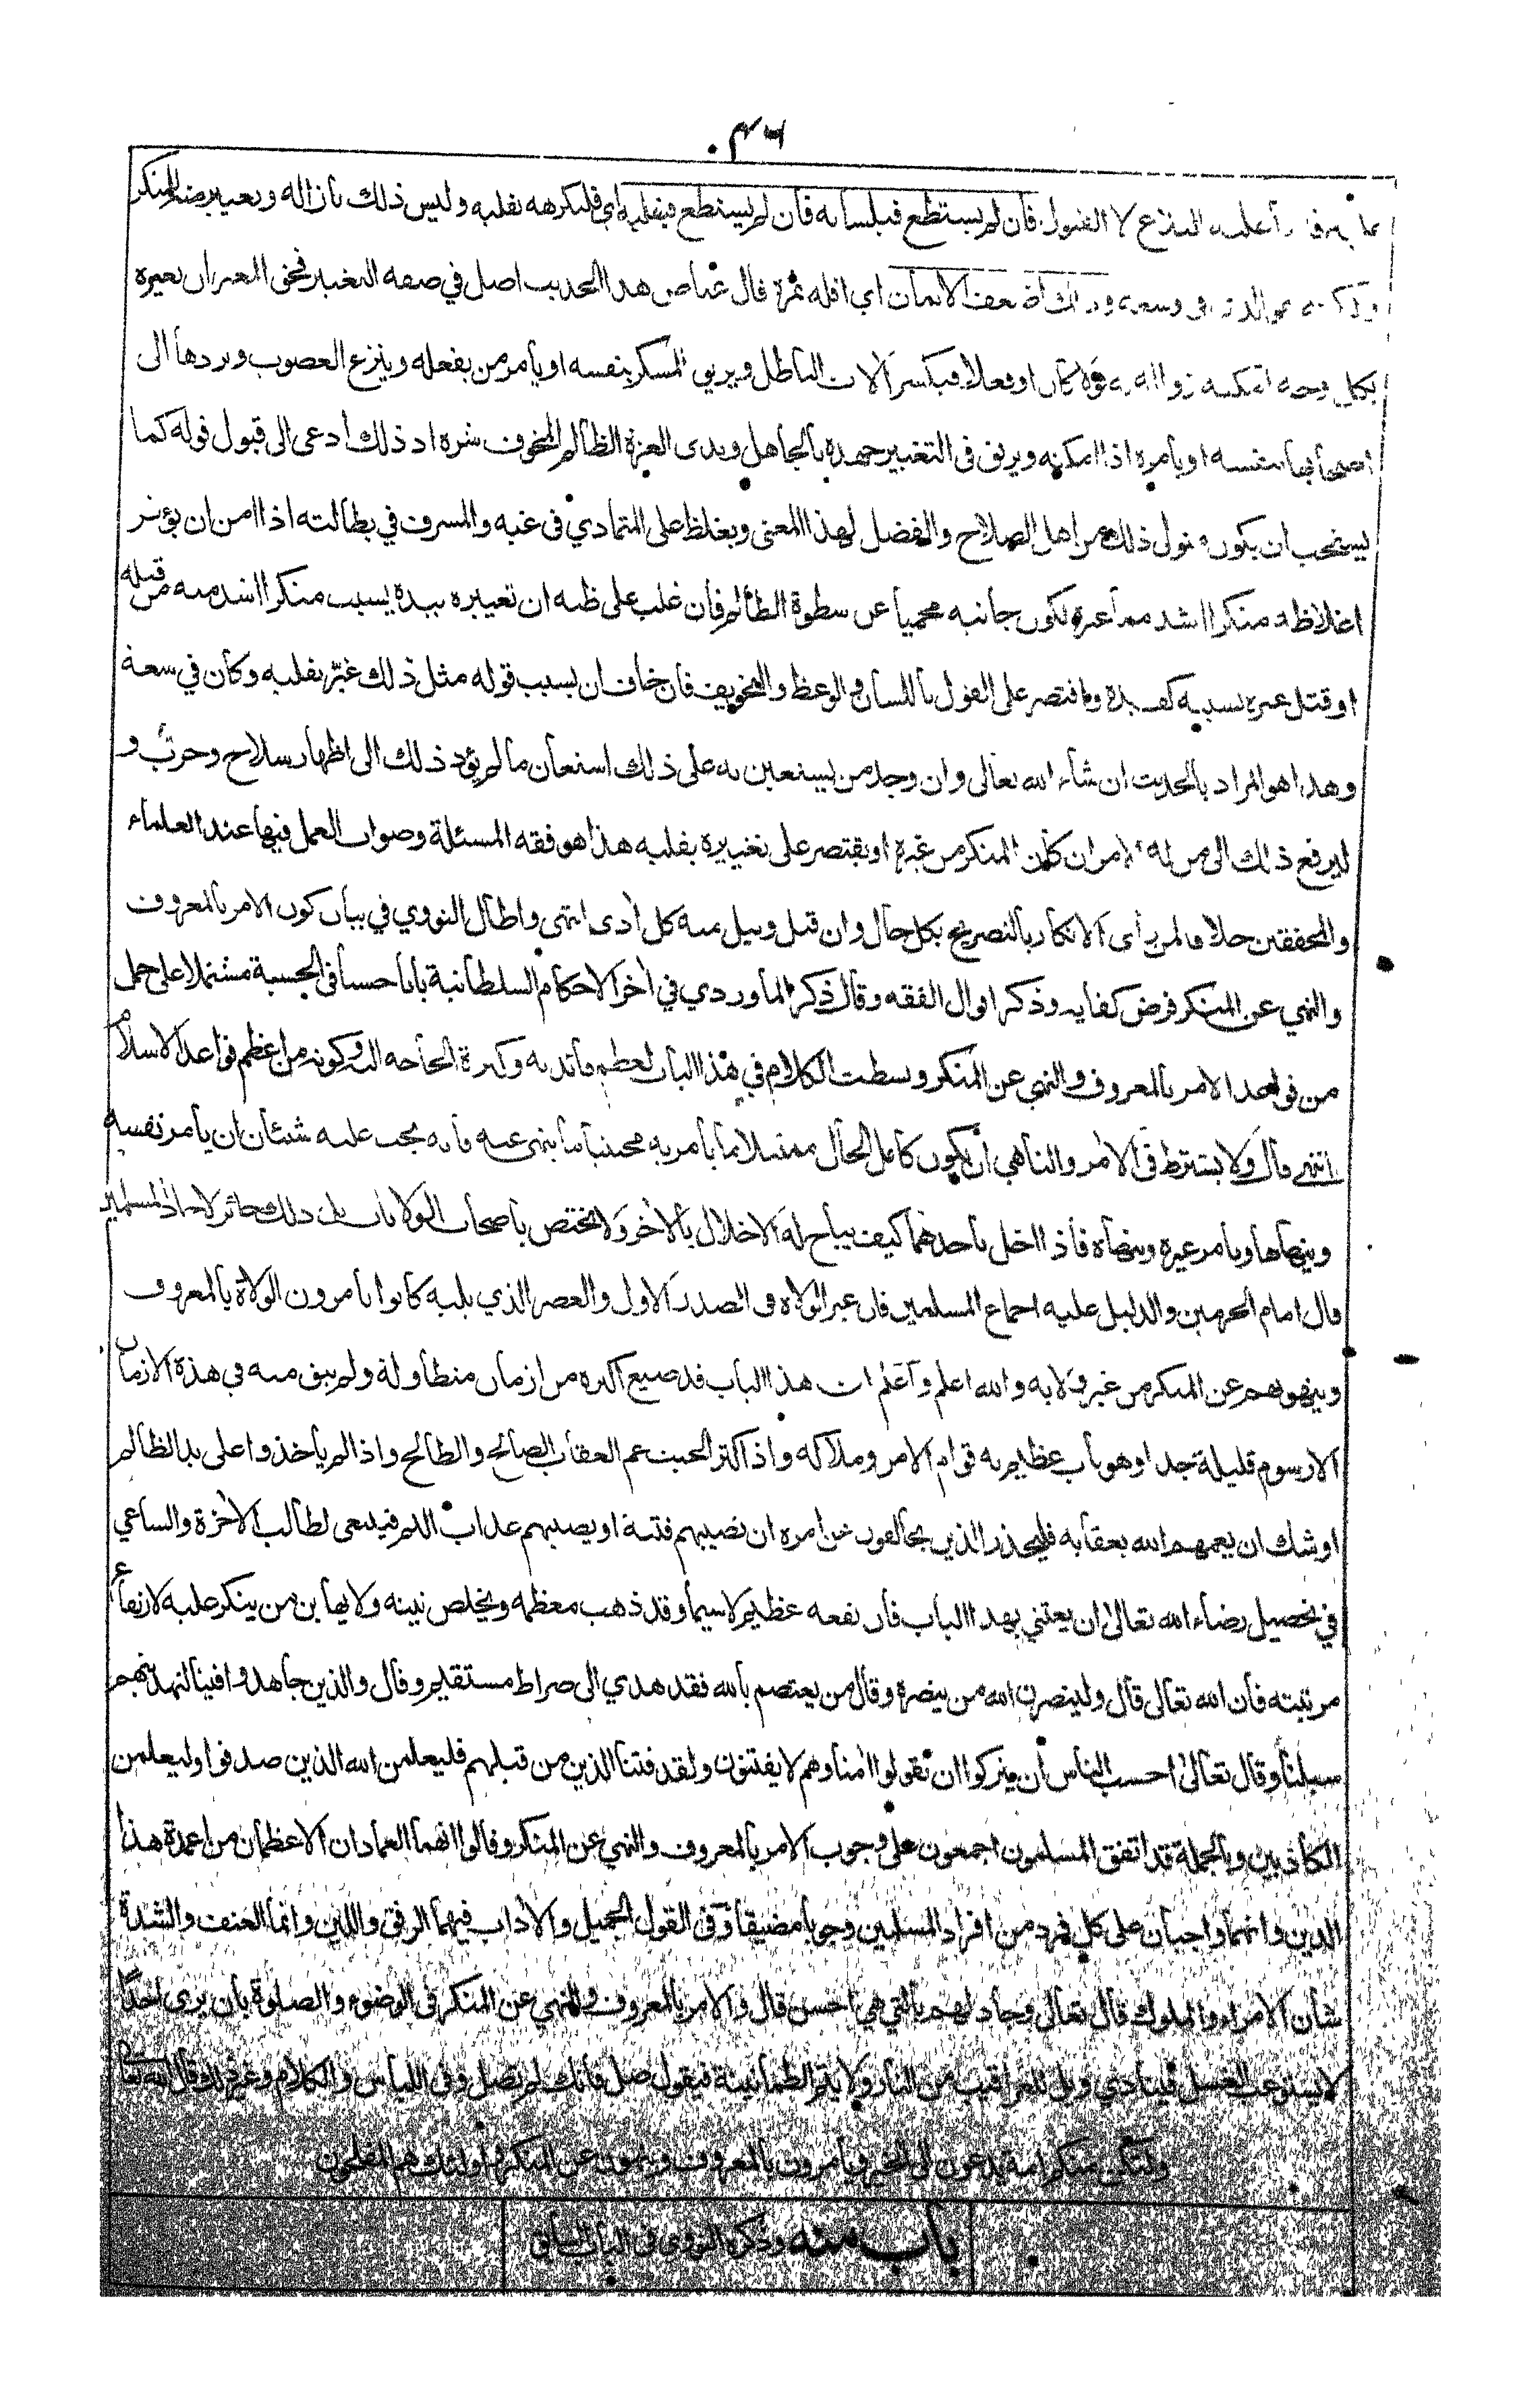 ٤٦
فأن لم يستطع فبلسأنه فأن لم يستطع فبقلبه أي فليكرهه بقلبه وليس ذلك بأزالة وتغيير منه للمنكر
ولكنه هو الذي في وسعه وذلك أضعف الأيمأن اي اقله ثمرة قال عياض هذا الحديث اصل في صفة التغيير فحق المغير ان يغيره
بكل وجه امكنه زواله به قولا كأن او فعلا فيكسر آلات البأطل ويريق المسكر بنفسه او يأمر من يفعله وينزع الغصوب ويردهأ الى
اصحأبهأ بنفسه او بأمره اذا امكنه ويرفق في التغيير جهده بألجأهل وبذى العزة الظألم المخوف شره اذ ذلك أدعى الى قبول قوله كما
يستحب ان يكون متولى ذلك من اهل الصلاح والفضل لهذا المعنى ويغلظ على المتمادي في غيه والمسرف في بطألته اذا امن ان يؤثر
اغلاظه منكرا اشد ممأ غيره لكون جأنبه محميأ عن سطوة الظألم فأن غلب على ظنه ان تغييره بيده يسبب منكرا اشد منه من قبله
او قتل غيره بسببه كف يده واقتصر على القول بأللسأن والوعظ والتخويف فأن خأف ان يسبب قوله مثل ذلك غيّر بقلبه وكأن في سعة
وهذا هو المراد بألحديث ان شأء الله تعالى وان وجد من يستعين به على ذلك استعأن ما لم يؤد ذلك الى اظهار سلاح وحرب و
ليرفع ذلك الى من له الامر ان كأن المنكر من غيره او يقتصر على تغييره بقلبه هذا هو فقه المسئلة وصواب العمل فيها عند العلماء
والمحققين خلافا لمن رأى الانكأر بألتصريح بكل حأل وان قتل ونيل منه كل أذى انتهى واطأل النووي في بيأن كون الامر بألمعروف
والنهي عن المنكر فرض كفأية وذكر اقوال الفقه وقأل ذكر المأوردي في أخر الاحكام السلطأنية بأبأ حسنأ في الحسبة مشتملا على جمل
من قواعد الامر بألمعروف والنهي عن المنكر وبسطت الكلام في هذا البأب لعظم فأئدته وكثرة الحأجة اليه وكونه من اعظم قواعد الاسلام
انتهى قأل ولا يشترط في الأمر والنأهي أن يكون كأمل الحأل ممتثلا مأ يأمر به مجتنبأ مأ ينهى عنه فأنه يجب عليه شيئأن ان يأمر نفسه
وينهأهأ ويأمر غيره وينهأه فأذا اخل بأحدهمأ كيف يبأح له الاخلال بألأخر ولا يختص بأصحأب الولايأت بل ذلك جائز لاحاد المسلمين
قال امام الحرمين والدليل عليه اجماع المسلمين فأن غير الولاة في الصدر الاول والعصر الذي يليه كأنوا يأمرون الولاة بألمعروف
وينهونهم عن المنكر من غير ولاية والله اعلم وأعلم ان هذا البأب قد ضيع اكثره من ازمأن متطأولة ولم يبق منه في هذه الازمأن
الا رسوم قليلة جدا وهو بأب عظيم به قوام الامر وملاكه واذا كثر الخبث عم العقأب الصألح والطألح واذا لم يأخذوا على يد الظألم
اوشك ان يعمهم الله بعقأبه فليحذر الذين يخألفون عن امره ان تصيبهم فتنة او يصيبهم عذاب اليم فينبغى لطألب الأخرة والسأعي
في تحصيل رضأء الله تعالى ان يعتني بهذا البأب فأن نفعه عظيم لاسيمأ وقد ذهب معظمه ويخلص نيته ولا يهأبن من ينكر عليه لارتفأع
مرتبته فأن الله تعالى قأل ولينصرن الله من ينصره وقأل من يعتصم بألله فقد هدي الى صراط مستقيم وقأل والذين جأهدوا فينا لنهدينهم
سبلنأ وقأل تعألى احسب النأس أن يتركوا ان يقولوا أمنأ وهم لا يفتنون ولقد فتنأ الذين من قبلهم فليعلمن الله الذين صدقوا وليعلمن
الكأذبين وبألجملة قد اتفق المسلمون اجمعون على وجوب الامر بألمعروف والنهي عن المنكر وقألوا انهمأ العمادان الاعظمأن من اعمدة هذا
الدين وانهمأ واجبأن على كل فرد من افراد المسلمين وجوبأ مضيقأ وفي القول الجميل والأداب فيهمأ الرفق واللين وانمأ العنف والشدة
شأن الامراء والملوك قأل تعألى وجأدلهم بألتي هي احسن قأل والامر بألمعروف والنهي عن المنكر في الوضوء والصلوة بأن يرى احدًا
لا يستوعب الغسل فينأدي ويل للعراقيب من النأر ولا يتم الطمأنينة فيقول صل فأنك لم تصل وفي اللبأس والكلام وغير ذلك وقأل الله تعألى
ولتكن منكم امة يدعون الى الخير ويأمرون بألمعروف وينهون عن المنكر واولئك هم المفلحون
بأب منه وذكره النووي في البأب السأبق